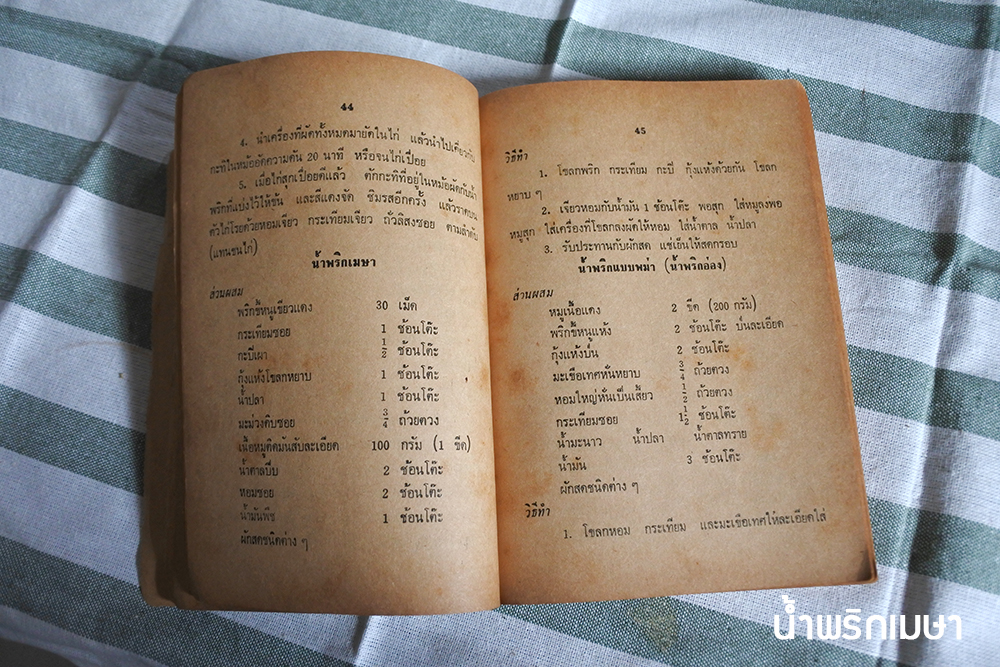 44
4. นำเครื่องที่ผัดทั้งหมดมายัดในไก่ แล้วนำไปเคี่ยวกับ
กะทิในหม้ออัดความดัน 20 นาที หรือจนไก่เปื่อย
5. เมื่อไก่สุกเปื่อยดีแล้ว ตักกะทิที่อยู่ในหม้อผัดกับน้ำ
พริกที่แบ่งไว้ให้ข้น และสีแดงจัด ชิมรสอีกครั้ง แล้วราดบน
ตัวไก่โรยด้วยหอมเจียว กระเทียมเจียว ถั่วลิสงซอย ตามลำดับ
(แทนขนไก่)
น้ำพริกเมษา
ส่วนผสม
พริกขี้หนูเขียวแดง 30 เม็ด
กระเทียมซอย 1 ช้อนโต๊ะ
กะปิเผา ½ ช้อนโต๊ะ
กุ้งแห้งโขลกหยาบ 1 ช้อนโต๊ะ
น้ำปลา 1 ช้อนโต๊ะ
มะม่วงดิบซอย ¾ ถ้วยตวง
เนื้อหมูติดมันสับละเอียด 100 กรัม (1 ขีด)
น้ำตาลปีบ 2 ช้อนโต๊ะ
หอมซอย 2 ช้อนโต๊ะ
น้ำมันพืช 1 ช้อนโต๊ะ
ผักสดชนิดต่าง ๆ
45
วิธีทำ
1. โขลกพริก กระเทียม กะปิ กุ้งแห้งด้วยกัน โขลก
หยาบ ๆ
2. เจียวหอมกับน้ำมัน 1 ช้อนโต๊ะ พอสุก ใส่หมูลงพอ
หมูสุก ใส่เครื่องที่โขลกลงผัดให้หอม ใส่น้ำตาล น้ำปลา
3. รับประทานกับผักสด แช่เย็นให้สดกรอบ
น้ำพริกแบบพม่า (น้ำพริกอ่อง)
ส่วนผสม
หมูเนื้อแดง 2 ขีด (200 กรัม)
พริกขี้หนูแห้ง 2 ช้อนโต๊ะ ป่นละเอียด
กุ้งแห้งป่น 2 ช้อนโต๊ะ
มะเขือเทศหั่นหยาบ ¾ ถ้วยตวง
หอมใหญ่หั่นเป็นเสี้ยว ½ ถ้วยตวง
กระเทียมซอย 1½ ช้อนโต๊ะ
น้ำมะนาว น้ำปลา น้ำตาลทราย
น้ำมัน 3 ช้อนโต๊ะ
ผักสดชนิดต่าง ๆ
วิธีทำ
1. โขลกหอม กระเทียม และมะเขือเทศให้ละเอียดใส่
น้ำพริกเมษา